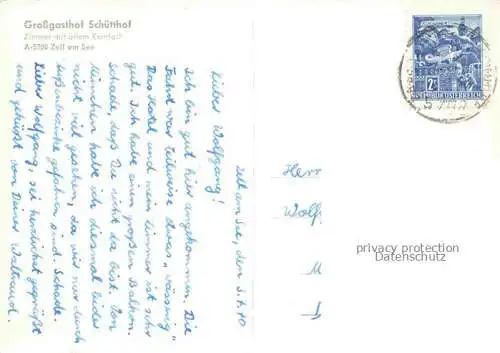 Großgasthof Schütthof
Zimmer mit allem Komfort
A-5700 Zell am See
Zell am See, den 5.7.70
Lieber Wolfgang!
Ich bin gut hier angekommen. Die
Fahrt war teilweise etwas "rässig".
Das Hotel und mein Zimmer ist sehr
gut. Ich habe einen großen Balkon.
Schade, daß Du nicht da bist. Von
München habe ich diesmal leider
nicht viel gesehen, da wir nur durch
gefahren sind. Schade.
Lieber Wolfgang, sei herzlichst gegrüßt
und geküßt von Deiner Waltraud.
Herr
Wolf
M
REPUBLIK ÖSTERREICH
privacy protection
Datenschutz